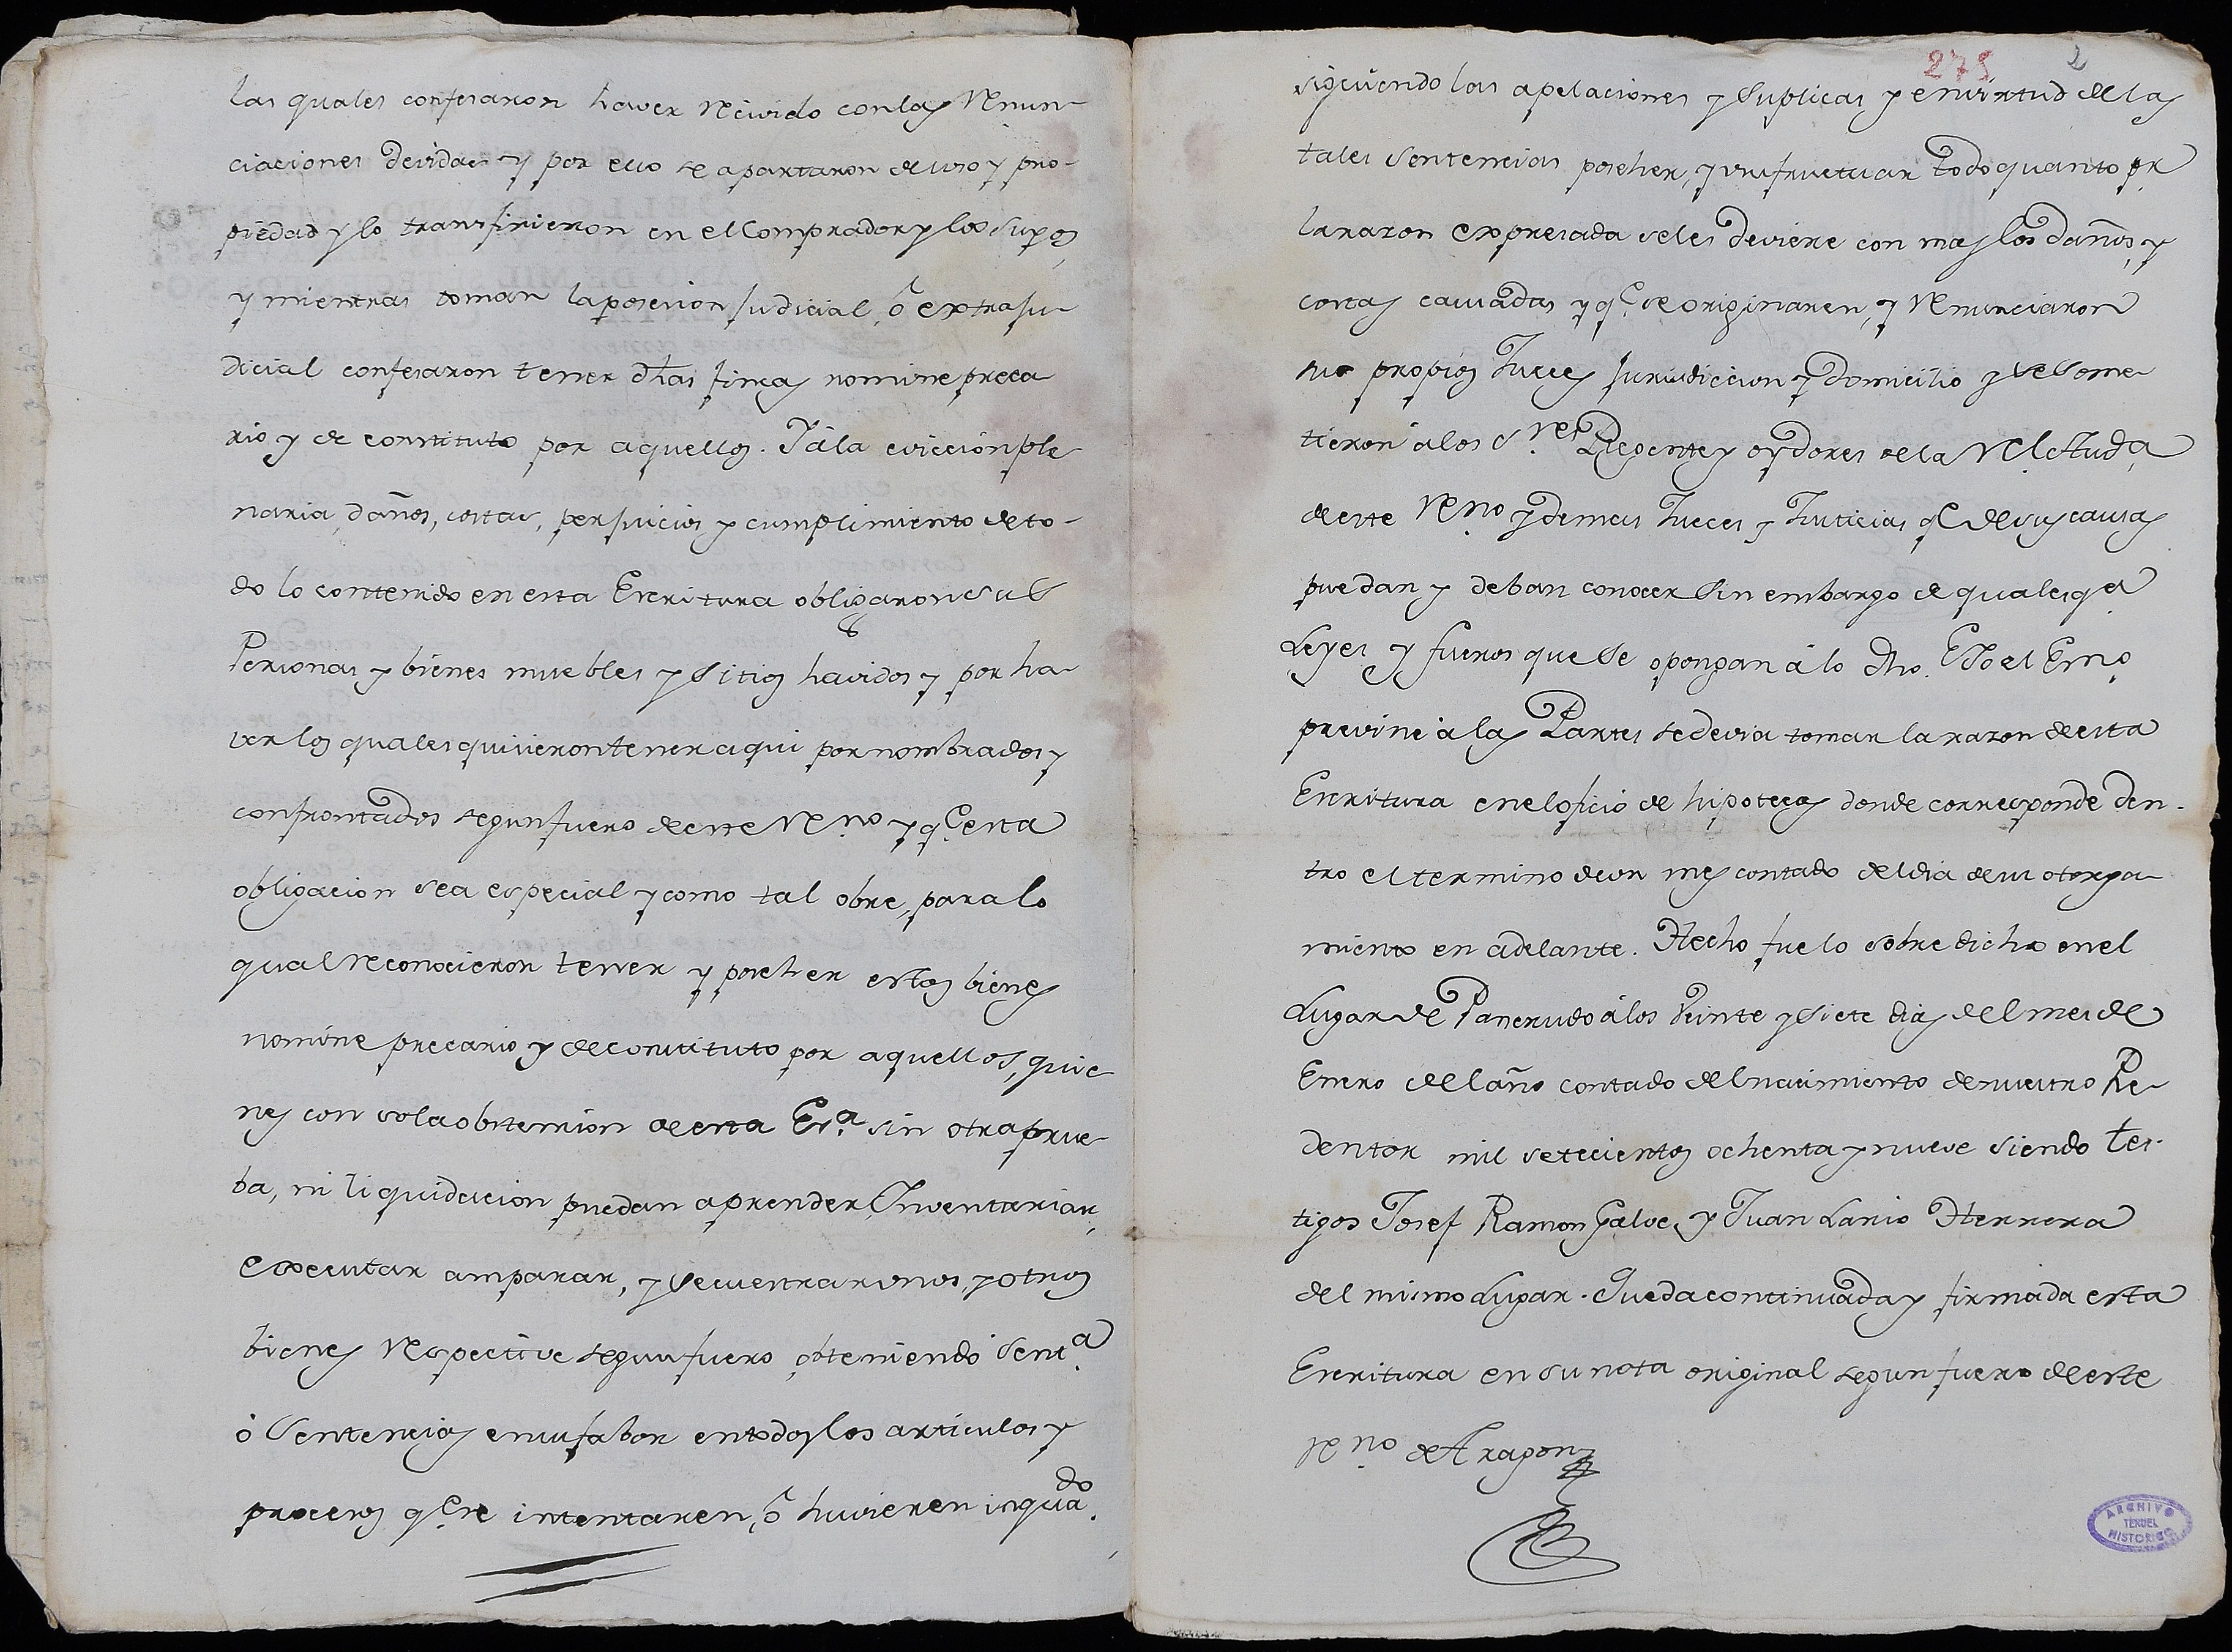 las quales confesaron haver recivido con las renun-
ciaciones devidas y por ello se apartaron de uso y pro-
piedad y lo transfirieron en el Comprador y los suyos,
y mientras toman la posesion judicial, ó extraju-
dicial confesaron tener dhas fincas nomine preca-
rio y de constituto por aquellos. Y á la eviccion ple-
naria, daños, costas, perjuicios y cumplimiento de to-
do lo contenido en esta Escritura obligaron sus
Personas y bienes muebles y sitios havidos y por ha-
ver los quales quisieron tener aqui por nombrados y
confrontados segun fuero de este Rno y qe esta
obligacion sea especial y como tal obre, para lo
qual reconocieron tener y poseher estos bienes
nomine precario y de constituto por aquellos, quie-
nes con sola obstension de esta Esa. sin otra prue-
ba, ni liquidacion puedan aprender, Inventariar,
executar amparar, y secuestrar unos, y otros
bienes respective segun fuero, obteniendo senta.
ó sentencias en su fabor en todos los articulos y
procesos qe. se intentaren, ó huvieren intado.
275 2
siguiendo las apelaciones y suplicas y en virtud de las
tales sentencias poseher, y usufructuar todo quanto pr
la razon expresada se les deviere con mas los daños, y
costas causadas y qe. se originaren, y renunciaron
sus propios Jueces jurisdiccion y domicilio y se some-
tieron á los Sres. Regente y oydores de la Rl. Auda
de este Reno y demas Jueces y Justicias qe de sus causas
puedan y deban conocer sin embargo de qualesqa
Leyes y fueros que se opongan á lo dho. Yo el Esno
previne á las Partes se devia tomar la razon de esta
Escritura en el oficio de hipotecas donde corresponde den-
tro el termino de un mes contado del dia de su otorga-
miento en adelante. Hecho fue lo sobredicho en el
Lugar de Pancrudo á los Veinte y siete dias del mes de
Enero del año contado del nacimiento de nuestro Re-
dentor mil setecientos ochenta y nueve siendo tes-
tigos Josef Ramon Galve, y Juan Lario Herrera
del mismo Lugar. Queda continuada y firmada esta
Escritura en su nota original segun fuero de este
Reno de Aragon
ARCHIVO
TERUEL
HISTORICO